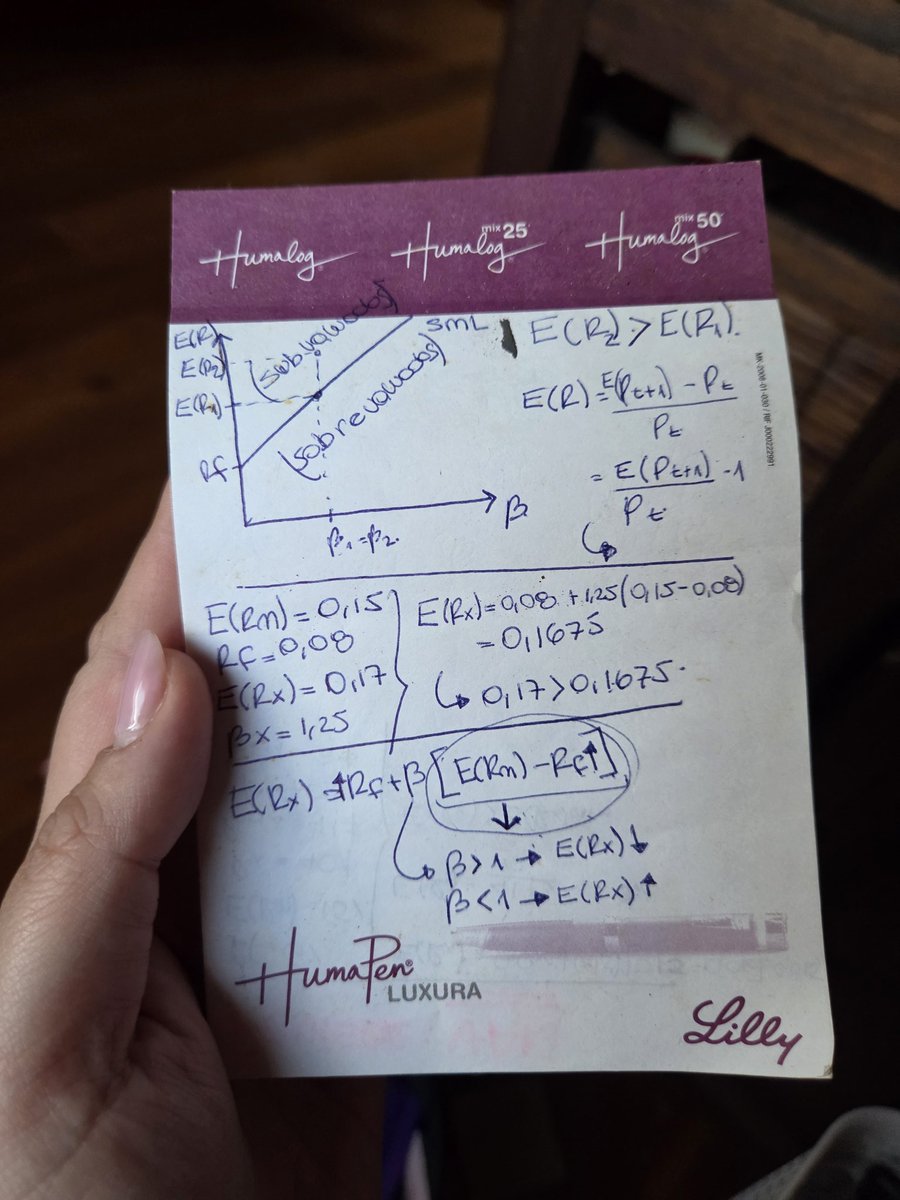 Humalog Humalog mix25 Humalog mix50
E(R)
E(R2)
E(R1)
Rf
(Subvaluados)
(Sobrevaluados)
SML
β
β1=β2
E(R2) > E(R1).
E(R) = E(Pt+1) - Pt
Pt
= E(Pt+1) - 1
Pt
MK-2008-01-030 / RIF J000222991
E(Rm) = 0,15
Rf = 0,08
E(Rx) = 0,17
βx = 1,25
E(Rx) = 0,08 + 1,25(0,15-0,08)
= 0,1675
↳ 0,17 > 0,1675.
E(Rx) = ↑Rf + β [E(Rm) - Rf↑]
↓
↳ β > 1 → E(Rx) ↓
β < 1 → E(Rx) ↑
HumaPen®
LUXURA
Lilly